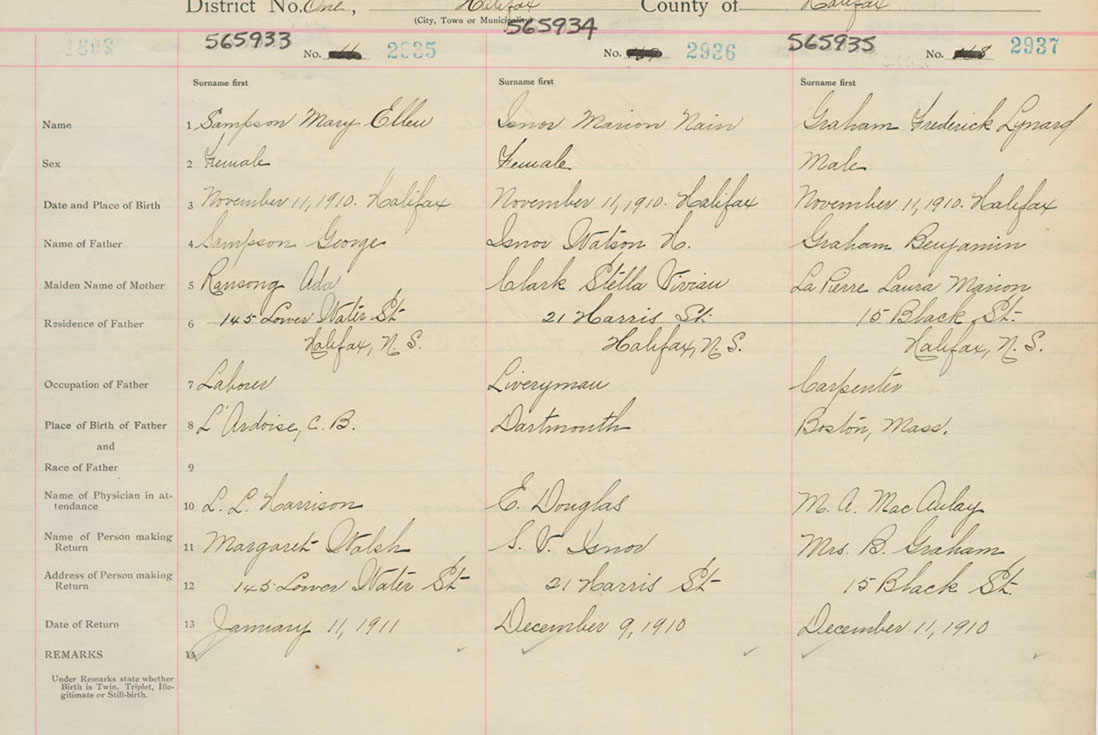 District No. One, Halifax County of Halifax
(City, Town or Municipality)
565933 565934 565935
No. 2935 No. 2936 No. 2937
Surname first Surname first Surname first
Name 1 Sampson Mary Ellen Isnor Marion Nain Graham Frederick Lynard
Sex 2 Female Female Male
Date and Place of Birth 3 November 11, 1910. Halifax November 11, 1910. Halifax November 11, 1910. Halifax
Name of Father 4 Sampson George Isnor Watson H. Graham Benjamin
Maiden Name of Mother 5 Ransong Ada Clark Stella Vivian La Pierre Laura Marion
Residence of Father 6 145 Lower Water St. 21 Harris St. 15 Black St.
Halifax, N.S. Halifax, N.S. Halifax, N.S.
Occupation of Father 7 Laborer Liveryman Carpenter
Place of Birth of Father 8 L'Ardoise, C.B. Dartmouth Boston, Mass.
and
Race of Father 9
Name of Physician in at-
tendance 10 L. L. Harrison E. Douglas M. A. MacAulay
Name of Person making
Return 11 Margaret Walsh S. V. Isnor Mrs. B. Graham
Address of Person making
Return 12 145 Lower Water St. 21 Harris St. 15 Black St.
Date of Return 13 January 11, 1911 December 9, 1910 December 11, 1910
REMARKS 14
Under Remarks state whether
Birth is Twin. Triplet, Ille-
gitimate or Still-birth.